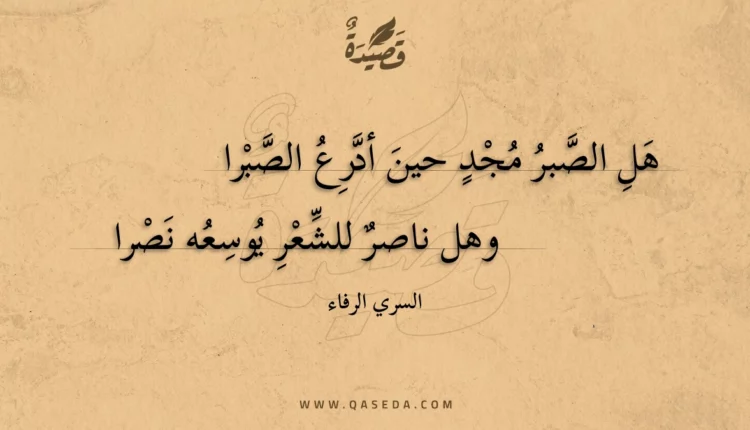 قَصِيْدَةٌ
هَلِ الصَّبرُ مُجْدٍ حينَ أدَّرِعُ الصَّبْرا
وهل ناصرٌ للشِّعْرِ يُوسِعُه نَصْرا
السري الرفاء
WWW.QASEDA.COM